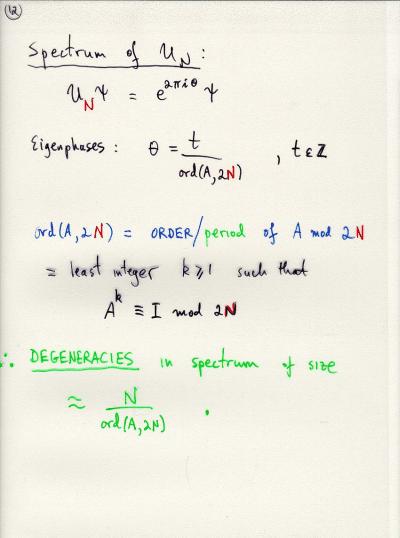 12
Spectrum of U_N :
U_N Ψ = e^{2πiθ} Ψ
Eigenphases : θ = t / ord(A,2N) , t ε ℤ
ord(A,2N) = ORDER/period of A mod 2N
= least integer k ⩾ 1 such that
A^k ≡ I mod 2N
∴ DEGENERACIES in spectrum of size
≈ N / ord(A,2N) .